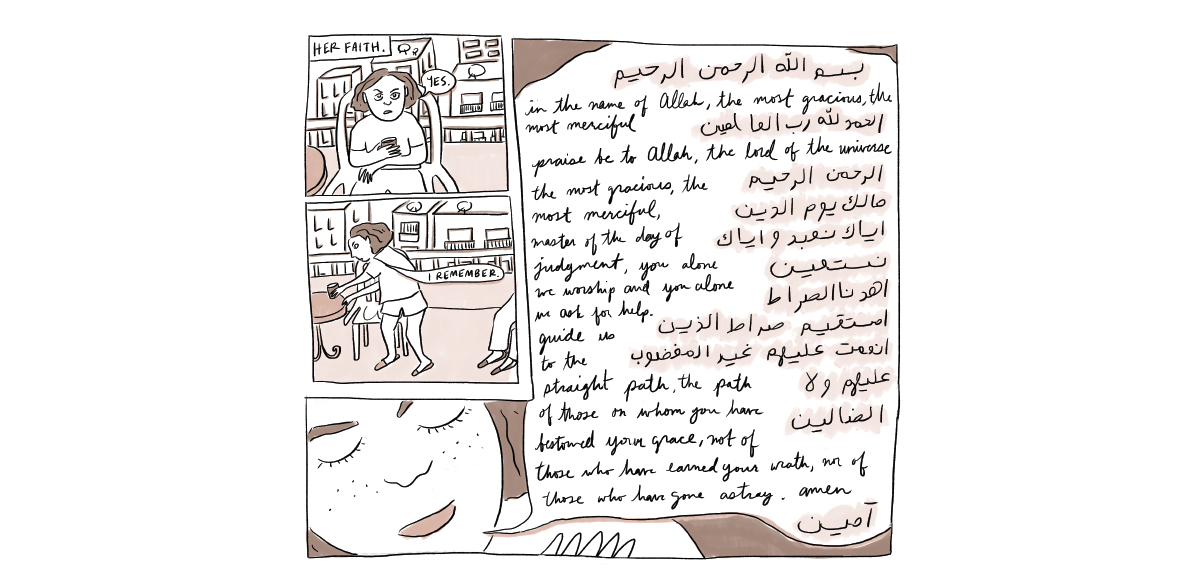 HER FAITH.
YES.
I REMEMBER.
بسم الله الرحمن الرحيم
in the name of Allah, the most gracious, the
most merciful
الحمد لله رب العالمين
praise be to Allah, the lord of the universe
the most gracious, the
most merciful,
master of the day of
judgment, you alone
we worship and you alone
we ask for help.
guide us
to the
straight path, the path
of those on whom you have
bestowed your grace, not of
those who have earned your wrath, nor of
those who have gone astray. amen
الرحمن الرحيم
مالك يوم الدين
اياك نعبد و اياك
نستعين
اهدنا الصراط
امستقيم صراط الذين
انعمت عليهم غير المغضوب
عليهم ولا
الضالين
آمين